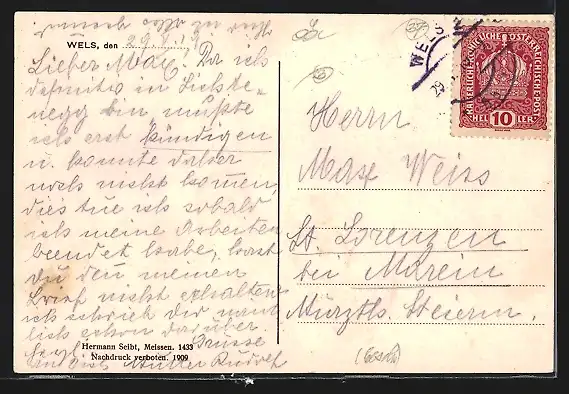 WELS, den 29./7.19
Lieber Max! Da ich
definitiv in Lichte-
negg bin, mußte
ich erst kündigen
u. konnte daher
noch nicht kommen,
dies tue ich sobald
ich meine Arbeiten
beendet habe, hast
du den meinen
Brief nicht erhalten
ich schrieb dir näm
lich schon darüber.
Rudolf
Hermann Seibt, Meissen. 1433
Nachdruck verboten. 1909
KAISERLICHE KÖNIGLICHE ÖSTERREICHISCHE POST
HEL 10 LER
WELS
Herrn
Max Weiss
St. Lorenzen
bei Marein
Mürztl. Steierm.